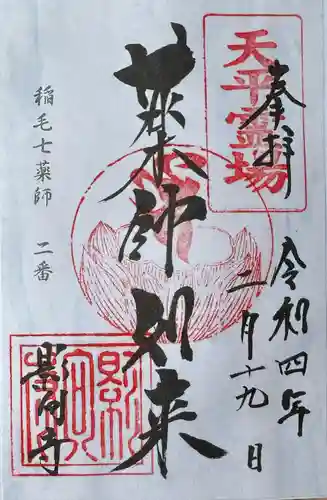 天平霊場
奉拝
令和四年
二月十九日
薬師如来
稲毛七薬師　二番
影向寺